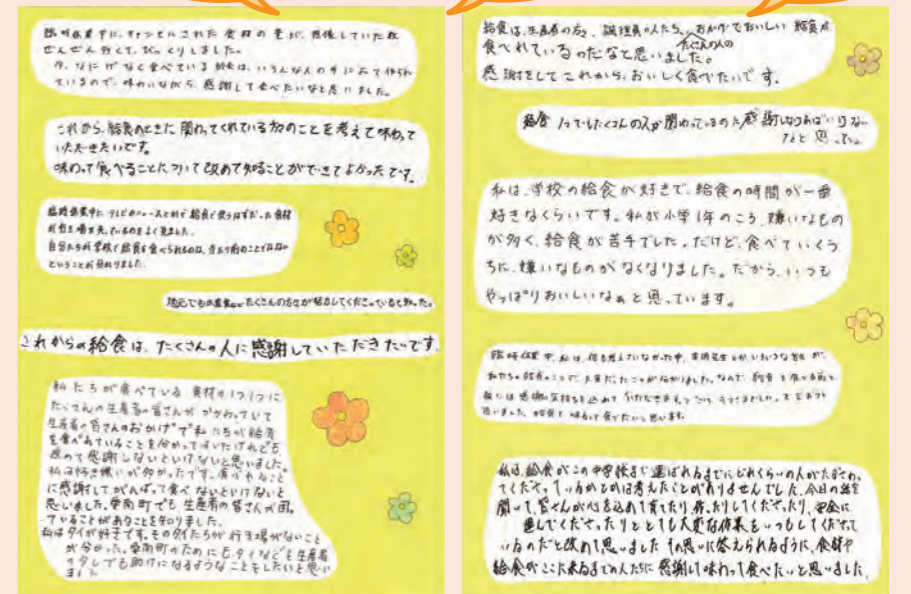 臨時休業中に、キャンセルされた食材の量が、想像していた数
ぜんぜん多くて、びっくりしました。
今、なにげなく食べている給食は、いろんな人の手によって作られ
ているので、味わいながら、感謝して食べたいなと思いました。
これから、給食のときに関わってくれている方々のことを考えて味わって
いただきたいです。
味わって食べることについて改めて知ることができてよかったです。
臨時休業中にテレビのニュースとかで給食で使うはずだった食材
が行き場を失っているのをよく見ました。
自分たちが学校で給食を食べられるのは、当たり前のことではない
ということが分かりました。
地元でも
たくさんの方々が努力してくださっていると知った。
これからの給食は、たくさんの人に感謝していただきたいです。
私たちが食べている食材の1つ1つに
たくさんの生産者の皆さんがかかわっていて
生産者の皆さんのおかげで私たちが給食
を食べれていることを分かってはいたけれども
改めて感謝しないといけないと思いました。
私は好き嫌いが多かったです。食べれること
に感謝してがんばって食べないといけないと
思いました。愛南町でも生産者の皆さんが困っ
ていることがあることを知りました。
私はタイが好きです。そのタイたちが行き場がないこと
が分かった。愛南町のためにもタイなどを生産者
の少しでも助けになるようなことをしたいと思い
ました
給食は、生産者の方々、調理員の人たち、おかげでおいしい給食が
たくさんの人の
食べれているのだなと思いました。
感謝をしてこれから、おいしく食べたいです。
給食1つでもたくさんの人が関わっているので感謝しなければいけない
なと思った。
私は、学校の給食が好きで、給食の時間が一番
好きなくらいです。私が小学1年のころ、嫌いなもの
が多く、給食が苦手でした。だけど、食べていくう
ちに、嫌いなものがなくなりました。だから、いつも
やっぱりおいしいなぁと思っています。
臨時休業中、私は、何も考えていなかった中、
私たちの給食のことで、大変だったことが分かりました。なので、給食を食べる前と
後には感謝の気持ちを込めて「いただきます」「ごちそうさまでした。」と
思いました。給食を味わって食べたいと思います。
私は、給食がこの中学校まで運ばれるまでにどれくらいの人がたずさわっ
てくださっているかとかは考えたことがありませんでした。今日の話を
聞いて、皆さんが心を込めて育てたり、作ったりしてくださったり、安全に
運んでくださったりととても大変な作業をいつもしてくださって
いるのだと改めて思いました。その思いに答えられるように、食材や
給食がここに来るまでの人たちに感謝して味わって食べたいと思いました。